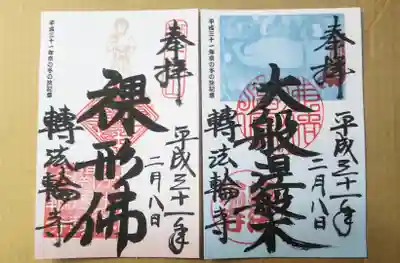 奉拝
平成三十一年
二月八日
大般涅槃
轉法輪寺
平成三十一年京の冬の旅記念
奉拝
平成三十一年
二月八日
裸形佛
轉法輪寺
平成三十一年京の冬の旅記念